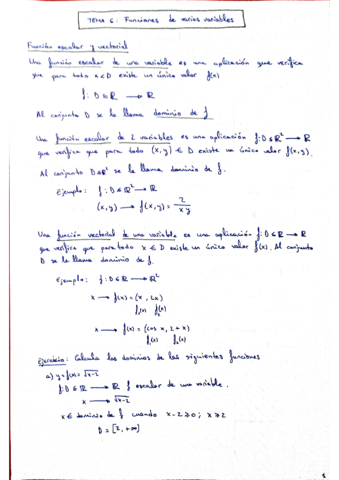 TEMA 6: Funciones de varias variables
Función escalar y vectorial
Una función escalar de una variable es una aplicación que verifica
que para todo x ∈ D existe un único valor f(x)
f: D ⊆ ℝ → ℝ
Al conjunto D se le llama dominio de f
Una función escalar de 2 variables es una aplicación f: D ⊆ ℝ² → ℝ
que verifica que para todo (x, y) ∈ D existe un único valor f(x, y).
Al conjunto D ⊆ ℝ² se le llama dominio de f.
Ejemplo: f: D ⊆ ℝ² → ℝ
(x, y) → f(x, y) = 2/xy
Una función vectorial de una variable es una aplicación f: D ⊆ ℝ → ℝ
que verifica que para todo x ∈ D existe un único valor f(x). Al conjunto
D se le llama dominio de f.
Ejemplo: f: D ⊆ ℝ → ℝ²
x → f(x) = (x, 2x)
f₁(x) f₂(x)
x → f(x) = (cos x, 2 + x)
f₁(x) f₂(x)
Ejercicio: Calcula los dominios de las siguientes funciones
a) y = f(x) = √x-2
f: D ⊆ ℝ → ℝ f escalar de una variable.
x → √x-2
x ∈ dominio de f cuando x - 2 ≥ 0; x ≥ 2
D = [2, +∞)